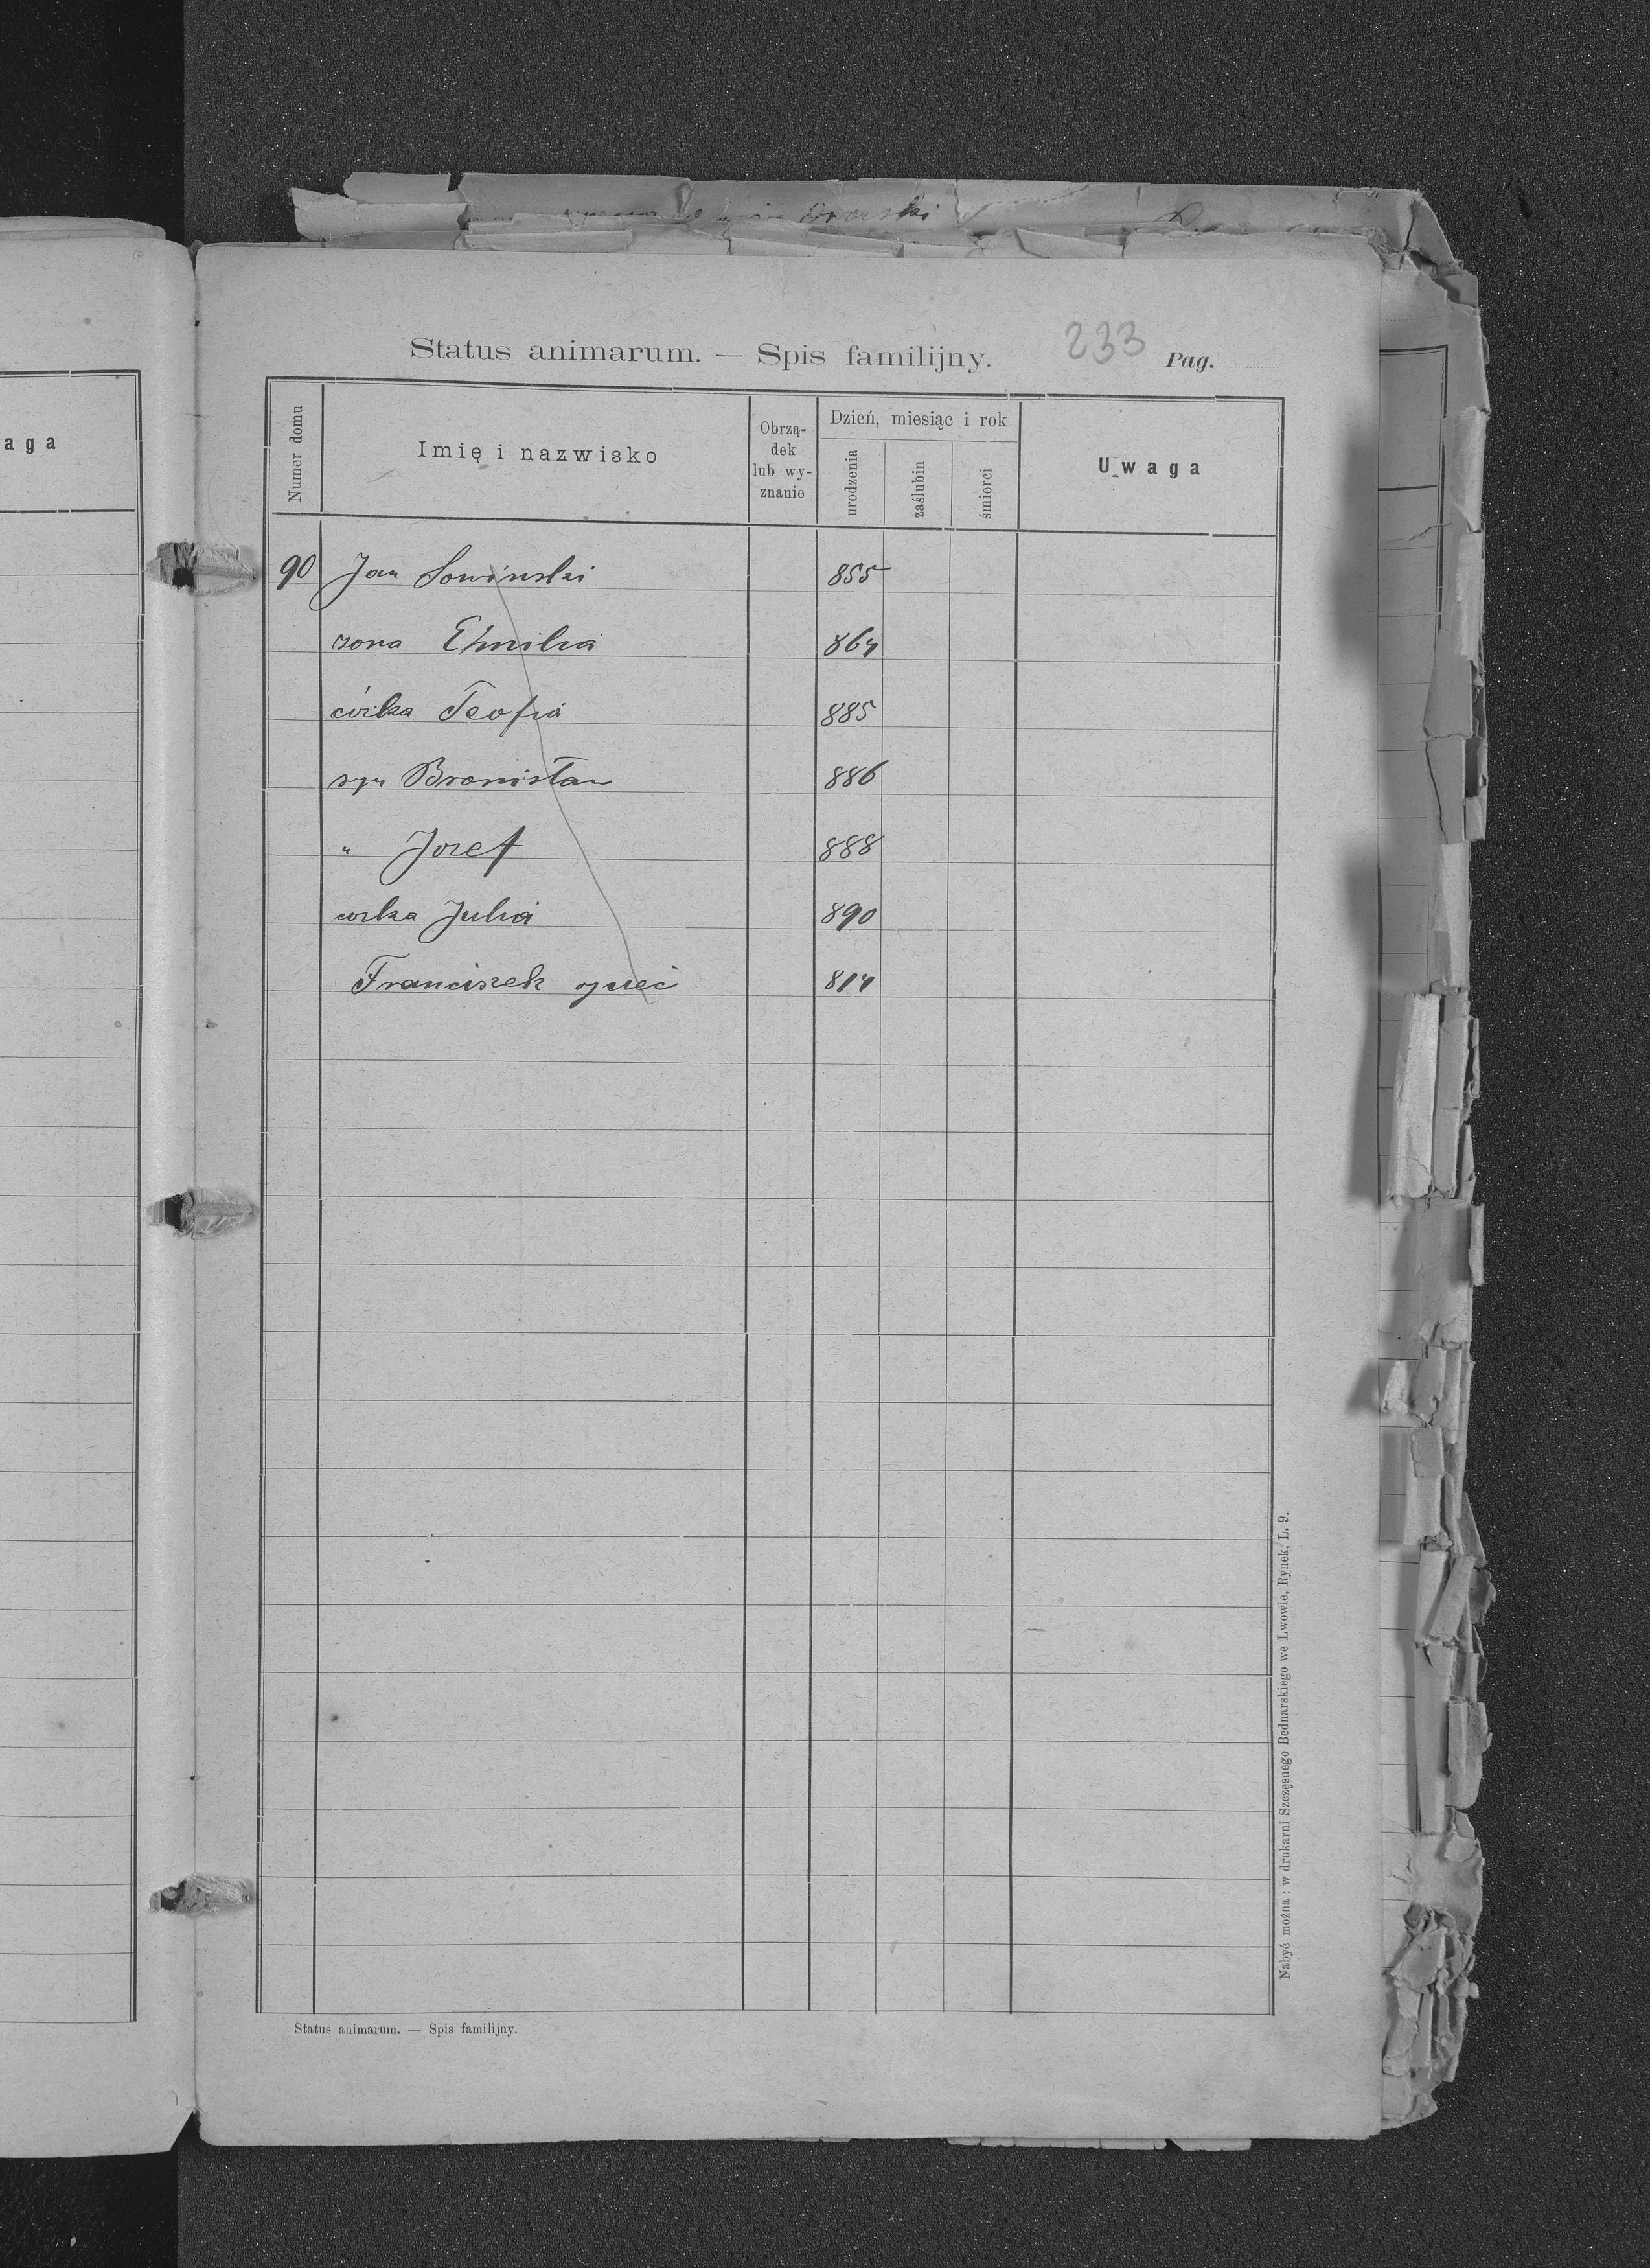 orski
aga
Status animarum. — Spis familijny. 233 Pag.
Numer domu
Imię i nazwisko
Obrzą-
dek
lub wy-
znanie
Dzień, miesiąc i rok
urodzenia
zaślubin
śmierci
Uwaga
90 Jan Sowinski 855
zona Emilia 864
córka Teofia 885
syn Bronisław 886
" Jozef 888
corka Julia 890
Franciszek ojciec 814
Nabyć można : w drukarni Szczęsnego Bednarskiego we Lwowie, Rynek, L. 9.
Status animarum. — Spis familijny.